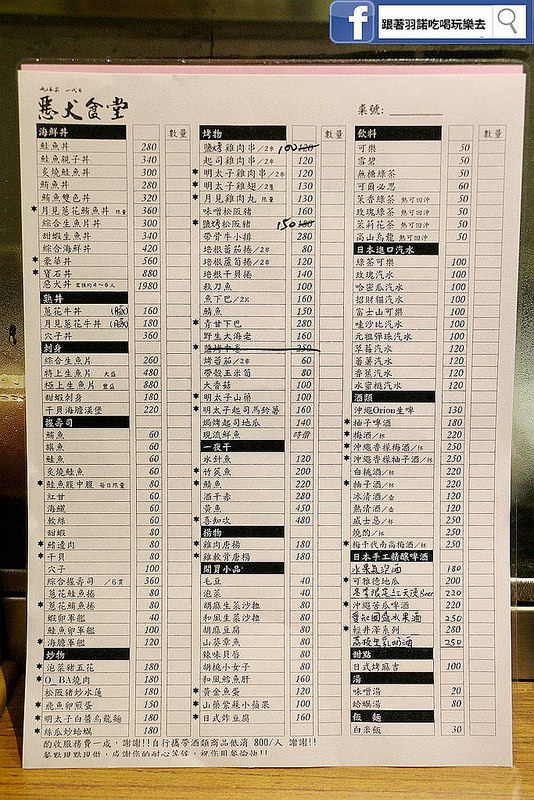 跟著羽諾吃喝玩樂去
惡犬食堂
桌號:
海鮮丼 數量
鮭魚丼 280
鮭魚親子丼 340
炙燒鮭魚丼 300
鮪魚丼 280
鮪魚雙色丼 320
* 月見蔥花鮪魚丼 限量 360
綜合生魚片丼 300
甜蝦生魚丼 340
綜合海鮮丼 420
* 豪華丼 560
* 寶石丼 880
惡犬丼 需預約4~6人 1980
熟丼
蔥花牛丼 (豚) 160
月見蔥花牛丼 (豚) 180
穴子丼 360
刺身
綜合生魚片 260
特上生魚片 大盛 480
極上生魚片 豐盛 880
甜蝦刺身 180
干貝海膽漢堡 220
握壽司
鮪魚 60
旗魚 60
鮭魚 60
炙燒鮭魚 60
* 鮭魚腹中腹 每日限量 80
紅甘 60
海鱺 60
軟絲 60
甜蝦 80
* 鰭邊肉 80
* 干貝 80
穴子 100
綜合握壽司 /6貫 360
蔥花鮭魚捲 80
* 蔥花鮪魚捲 80
蝦卵軍艦 40
鮭魚卵軍艦 100
* 海膽軍艦 120
炒物
* 泡菜豬五花 180
* O_BA燒肉 180
松阪豬炒水蓮 180
* 飛魚卵煎蛋 150
* 明太子白醬烏龍麵 180
* 絲瓜炒蛤蠣 180
烤物 數量
鹽烤雞肉串/2串 100 120
起司雞肉串/2串 120
* 明太子雞肉串/2串 130
* 明太子雞翅/2隻 130
* 月見雞肉丸 限量 130
味噌松阪豬 160
* 鹽烤松阪豬 150 180
帶骨牛小排 280
培根蕃茄捲/2串 80
培根蘆筍捲/2串 120
培根干貝捲 140
秋刀魚 100
魚下巴/2片 160
鯖魚 150
* 青甘下巴 280
野生大海老 160
* 鹽烤中卷 250
烤蕃茄/2串 60
帶殼玉米筍 80
大香菇 100
* 明太子山藥 100
* 明太子起司馬鈴薯 160
焗烤起司地瓜 140
現流鮮魚 時價
一夜干
水針魚 120
* 竹筴魚 200
* 鯖魚 220
酒干赤 280
黃魚 450
* 喜知次 480
揚物
* 雞肉唐揚 180
* 雞軟骨唐揚 180
開胃小品
毛豆 40
泡菜 40
胡麻生菜沙拉 80
和風生菜沙拉 80
胡麻豆腐 80
山葵章魚 80
辣味貝唇 80
胡桃小女子 80
和風鱈魚肝 160
* 黃金魚蛋 120
* 山藥紫絲小蘋果 100
* 日式炸豆腐 160
飲料 數量
可樂 50
雪碧 50
無糖綠茶 50
可爾必思 60
茉香綠茶 熱可回沖 50
玫瑰綠茶 熱可回沖 50
茉莉花茶 熱可回沖 50
高山烏龍 熱可回沖 50
日本進口汽水
綠茶可樂 100
玫瑰汽水 100
哈密瓜汽水 100
招財貓汽水 100
富士山可樂 100
哇沙比汽水 100
元祖彈珠汽水 100
草莓汽水 120
蕃薯汽水 120
香蕉汽水 120
水蜜桃汽水 120
酒類
沖繩Orion生啤 130
* 柚子啤酒 180
* 梅酒/杯 220
* 沖繩香檬梅酒/杯 250
* 沖繩香檬柚子酒/杯 250
白桃酒/杯 220
* 柚子酒/杯 220
冰清酒/壺 120
熱清酒/壺 120
威士忌/杯 250
燒酌/杯 250
* 梅干代南高梅酒/杯 250
日本手工精釀啤酒
水果氣泡酒 180
* 可雅德地瓜 200
冬季限定紅天使Beer 220
* 沖繩苦瓜啤酒 220
250
* 輕井澤系列 280
荔枝生乳奶酒 250
甜點
日式烤麻吉 100
湯
味噌湯 20
蛤蠣湯 80
飯 麵
白米飯 30
酌收服務費一成，謝謝!!自行攜帶酒類商品低消 800/人 謝謝!!
餐點現點現做，感謝您的耐心等候，祝您用餐愉快!!